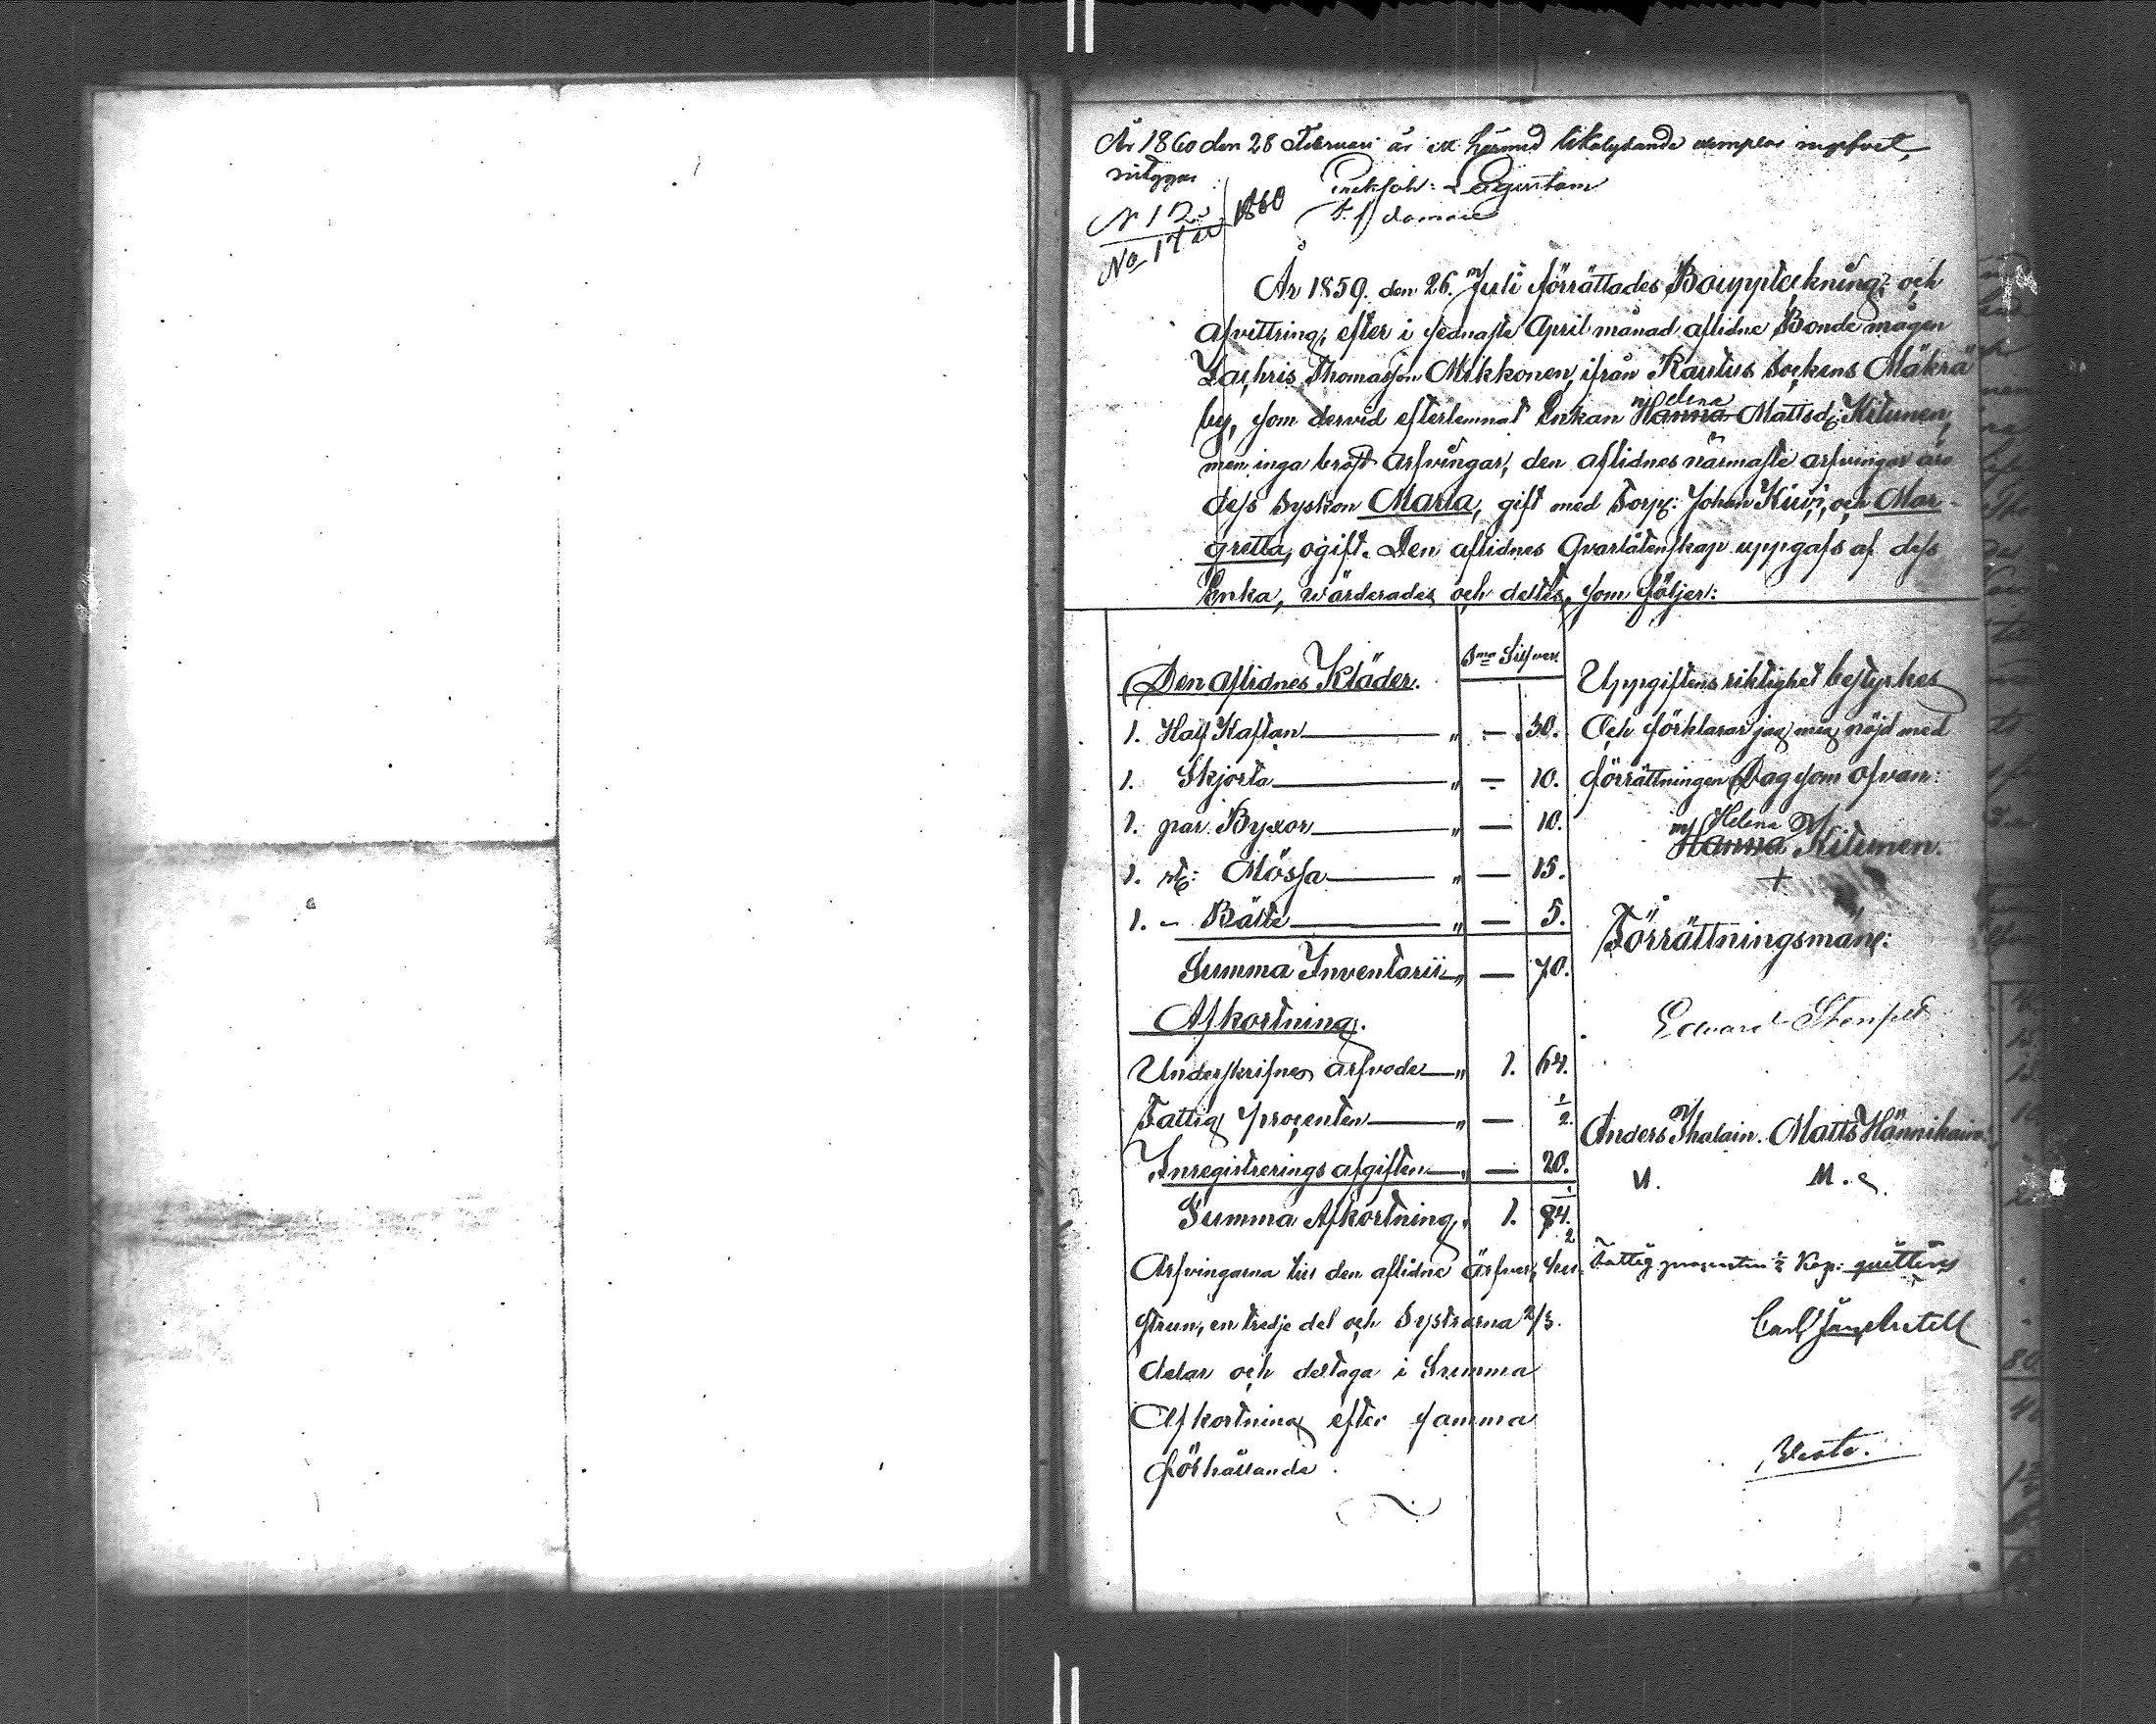 År 1860 den 28 Februari är ett härmed likalydande exemplar ingifvet,
intygar
No 12 1860
No 17
t. f. domare
År 1859. den 26. Juli förrättades Bouppteckning, och
afvittring, efter i sednaste April månad aflidne Bonde mågen
Zachris Thomasson Mikkonen, ifrån Rautus Sockens Mäkrä
by, som dervid efterlemnat Enkan Helena Mattsd: Kitunen,
men inga bröst arfvingar, den aflidnes närmaste arfvingar äro
dess Syskon Maria, gift med Torp: Johan Kiuri, och Mar-
gretta, ogift. Den aflidnes Qvarlåtenskap uppgafs af dess
Enka, wärderades och deltes, som följer:
Silfver.
Den Aflidnes Kläder.
1. Half Kaftan " — 30.
1. Skjorta " — 10.
1. par Byxor " — 10.
1. st: Mössa " — 15.
1. " Bälte " — 5.
Summa Inventarii " — 70.
Afkortning.
Underskrifnes arfvode " 1. 64.
Fattig procenten " — 1/2.
Inregistrerings afgiften " — 20.
Summa Afkortning " 1. 84. 1/2
Arfvingarna till den aflidne ärfver, hu-
strun, en tredje del och Systrarna 2/3.
delar och deltaga i Summa
Afkortning efter samma
förhållande.
Uppgiftens riktighet bestyrkes
Och förklarar jag mig nöjd med
förrättningen Dag som ofvan:
Helena
Hanna Kitunen.
+
Förrättningsmän:
Edvard
Anders Ihalain. Matts Hännikain.
Fattig procenten 1/2 Kop: quitteras
Carl